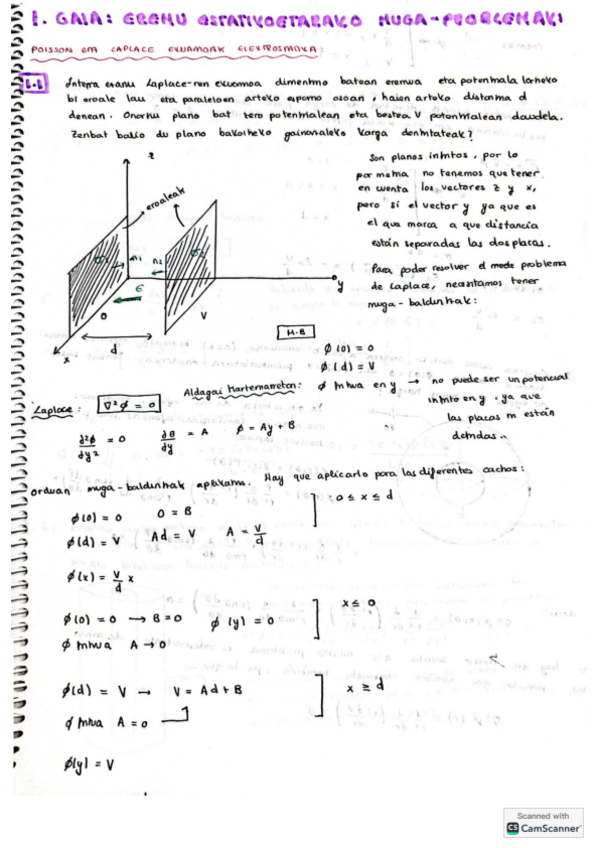 1. GAIA: EREMU ESTATIKOETARAKO MUGA-PROBLEMAK:
POISSON ETA LAPLACE EKUAZIOAK ELEKTROSTATIKA:
1.1 Integra ezazu Laplace-ren ekuazioa dimentsio batean eremua eta potentziala lortzeko
bi eroale lau eta paraleloen arteko espazio osoan, haien arteko distantzia d
denean. Onartu plano bat zero potentzialean eta bestea V potentzialean daudela.
Zenbat balio du plano bakoitzeko gainazaleko karga dentsitateak?
z
eroaleak
n1
n2
E
O
V
y
x
d
Son planos infinitos, por lo
no tenemos que tener
en cuenta los vectores z y x,
pero si el vector y ya que es
el que marca a que distancia
están separadas las dos placas.
Para poder resolver el problema
de Laplace, necesitamos tener
muga-baldintzak:
M.B
ϕ(0) = 0
ϕ(d) = V
Laplace: ∇²ϕ = 0
Aldagai kartesiarretan: ϕ finitua en y → no puede ser un potencial
infinito en y, ya que
las placas si están
definidas.
d²ϕ/dy² = 0 dϕ/dy = A ϕ = Ay + B
orduan muga-baldintzak aplikatu. Hay que aplicarlo para los diferentes cachos:
ϕ(0) = 0 0 = B
0 ≤ x ≤ d
ϕ(d) = V Ad = V A = V/d
ϕ(x) = V/d x
ϕ(0) = 0 → B = 0 ϕ(y) = 0
x ≤ 0
ϕ finitua A → 0
ϕ(d) = V → V = Ad + B
x ≥ d
ϕ finitua A = 0
ϕ(y) = V
Scanned with
CS CamScanner